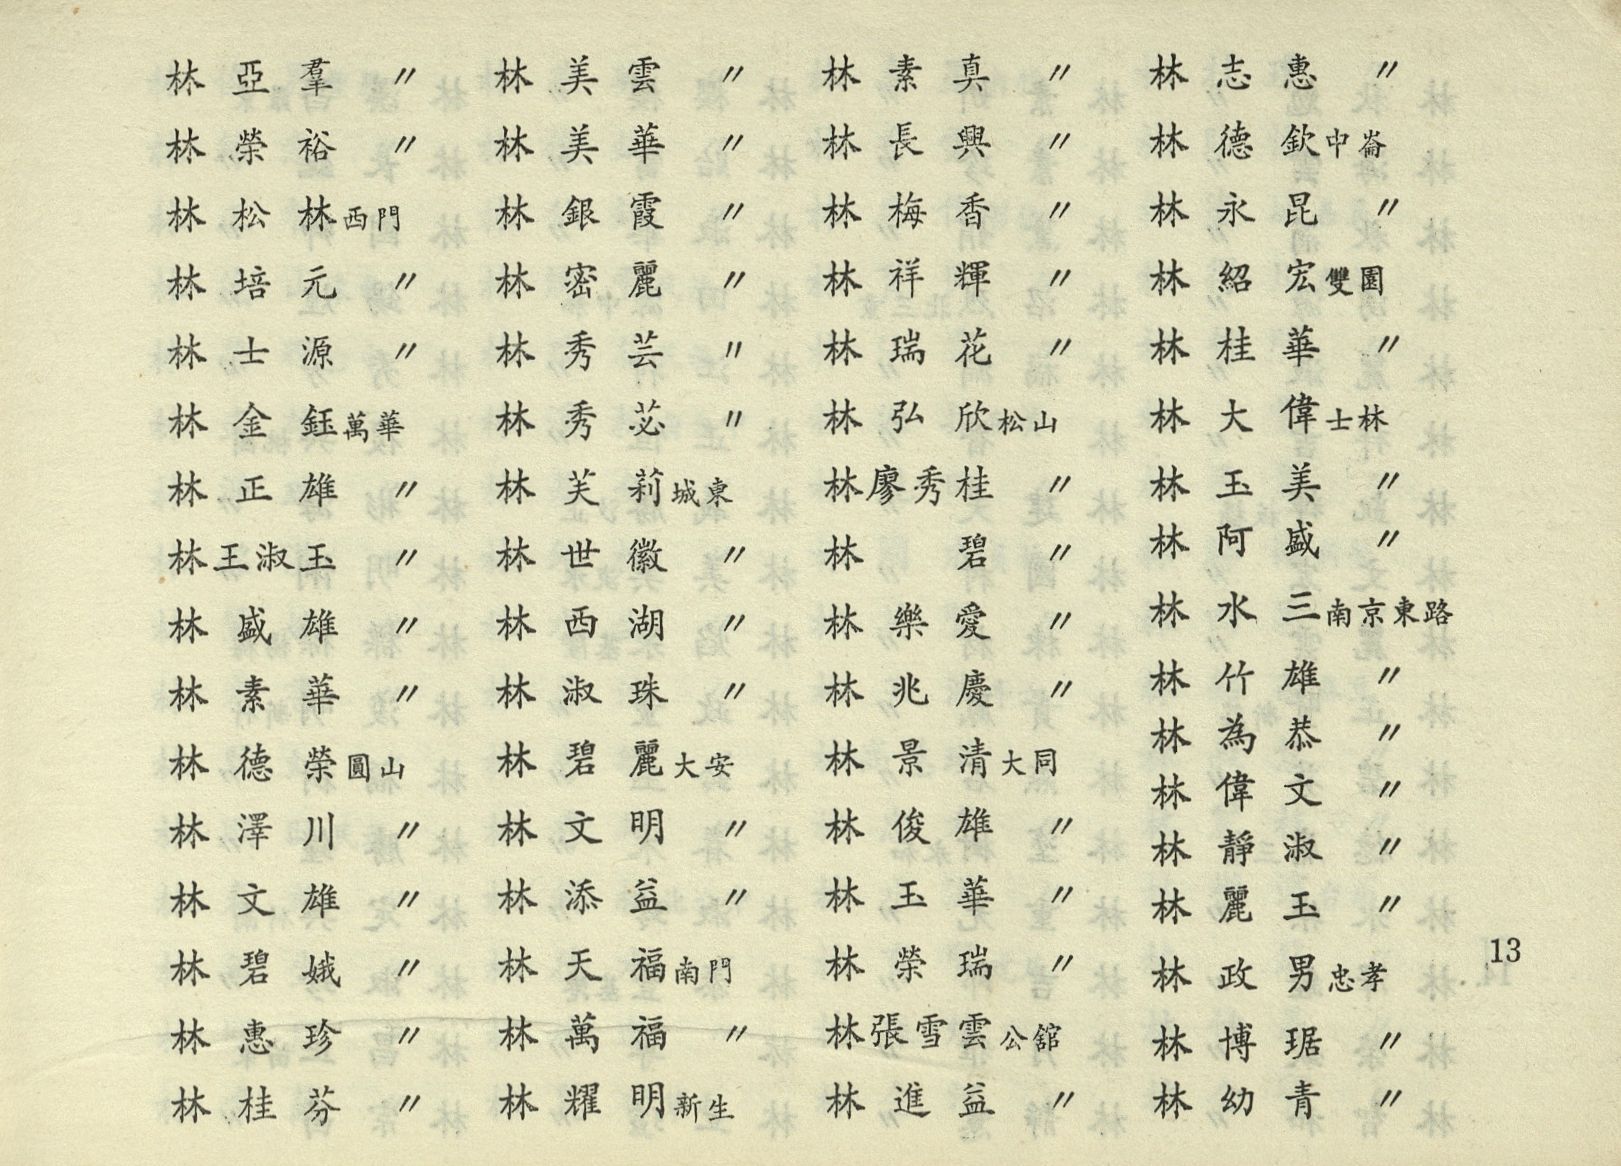 林亞羣 〃
林榮裕 〃
林松林 西門
林培元 〃
林士源 〃
林金鈺 萬華
林正雄 〃
林王淑玉 〃
林盛雄 〃
林素華 〃
林德榮 圓山
林澤川 〃
林文雄 〃
林碧娥 〃
林惠珍 〃
林桂芬 〃
林美雲 〃
林美華 〃
林銀霞 〃
林密麗 〃
林秀芸 〃
林秀苾 〃
林芙莉 城東
林世徽 〃
林西湖 〃
林淑珠 〃
林碧麗 大安
林文明 〃
林添益 〃
林天福 南門
林萬福 〃
林耀明 新生
林素真 〃
林長興 〃
林梅香 〃
林祥輝 〃
林瑞花 〃
林弘欣 松山
林廖秀桂 〃
林碧 〃
林樂愛 〃
林兆慶 〃
林景清 大同
林俊雄 〃
林玉華 〃
林榮瑞 〃
林張雪雲 公舘
林進益 〃
林志惠 〃
林德欽 中崙
林永昆 〃
林紹宏 雙園
林桂華 〃
林大偉 士林
林玉美 〃
林阿盛 〃
林水三 南京東路
林竹雄 〃
林為恭 〃
林偉文 〃
林靜淑 〃
林麗玉 〃
林政男 忠孝
林博琚 〃
林幼青 〃
13